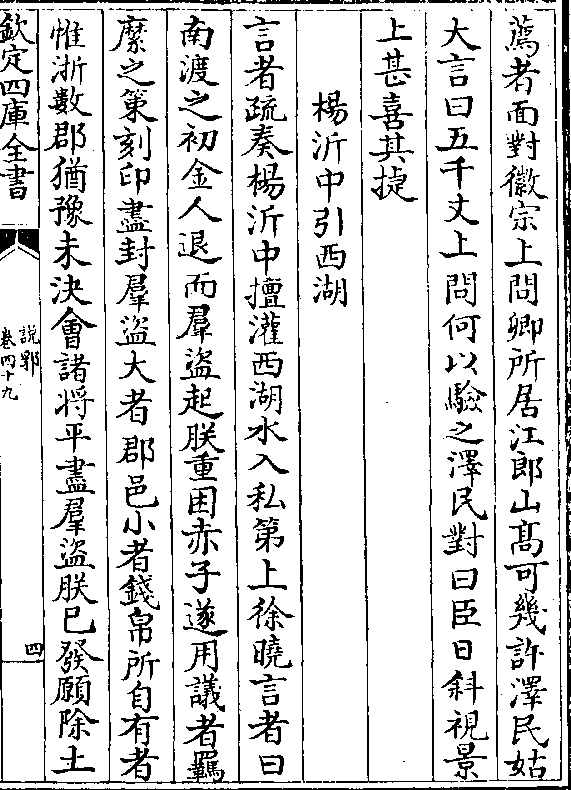 薦者面對徽宗上問卿所居江郎山髙可幾許澤民姑
大言曰五千丈上問何以驗之澤民對曰臣日斜視景
上甚喜其捷
楊沂中引西湖
言者疏奏楊沂中擅灌西湖水入私第上徐曉言者曰
南渡之初金人退而羣盜起朕重困赤子遂用議者羈
縻之策刻印盡封羣盜大者郡邑小者錢帛所自有者
惟浙數郡猶豫未決會諸将平盡羣盜朕已發願除土
欽定四庫全書
説郛
卷四十九
四